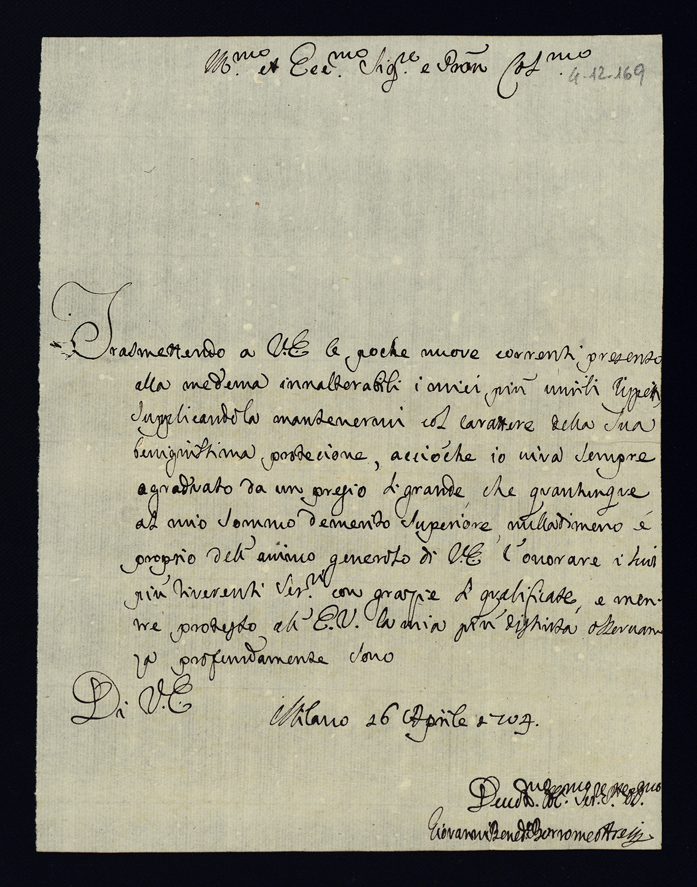 Ill.mo et Ecc.mo Sig.re e Pron Col.mo
4-12-169
Trasmettendo a V.E le poche nuove correnti presento
alla medema innalterabili i miei più umili rispetti,
supplicandola mantenermi col carattere della sua
benignissima protecione, acciòche io viva sempre
agraduato da un pregio sì grande, che quantunque
al mio sommo demerito superiore, nulladimeno é
proprio dell'animo generoso di V.E l'onorare i suoi
più riverenti Ser.ri con grazie sì qualificate, e men-
tre protesto all'E.V. la mia più distinta osservan-
za profundamente sono
Di V.E
Milano 16 Aprile 1704.
Giovanni Bened. Borromeo Arese